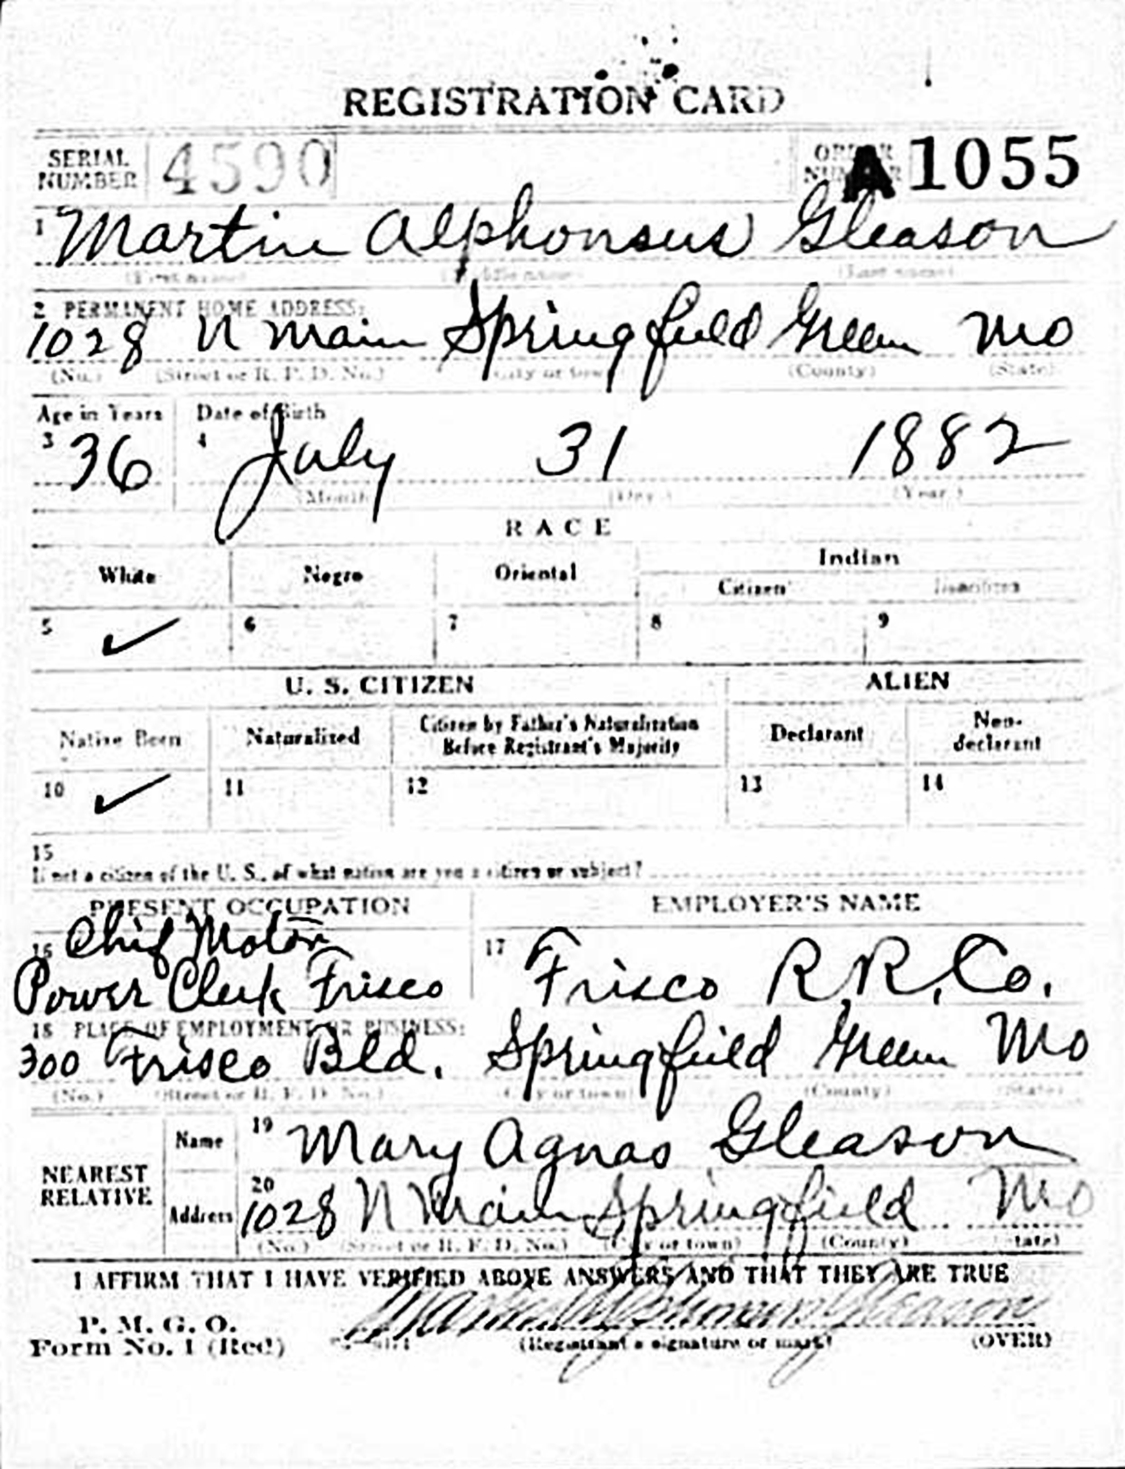 REGISTRATION CARD
SERIAL NUMBER 4590 ORDER NUMBER A1055
1 Martin Alphonsus Gleason
(First name) (Middle name) (Last name)
2 PERMANENT HOME ADDRESS:
1028 N Main Springfield Green Mo
(No.) (Street or R. F. D. No.) (City or town) (County) (State)
Age in Years Date of Birth
3 36 4 July 31 1882
(Month) (Day) (Year)
RACE
White Negro Oriental Indian
Citizen
5 ✓ 6 7 8 9
U. S. CITIZEN ALIEN
Native Born Naturalized Citizen by Father's Naturalization Before Registrant's Majority Declarant Non-declarant
10 ✓ 11 12 13 14
15
If not a citizen of the U. S., of what nation are you a citizen or subject?
PRESENT OCCUPATION EMPLOYER'S NAME
16 Chif Motor
Power Clerk Frisco 17 Frisco R.R. Co.
18 PLACE OF EMPLOYMENT OR BUSINESS:
300 Frisco Bld. Springfield Green Mo
(No.) (Street or R. F. D. No.) (City or town) (County) (State)
NEAREST RELATIVE
Name 19 Mary Agnas Gleason
Address 20 1028 N Main Springfield Mo
(No.) (Street or R. F. D. No.) (City or town) (County) (State)
I AFFIRM THAT I HAVE VERIFIED ABOVE ANSWERS AND THAT THEY ARE TRUE
P. M. G. O.
Form No. 1 (Red) Martin Alphonsus Gleason
(Registrant's signature or mark) (OVER)